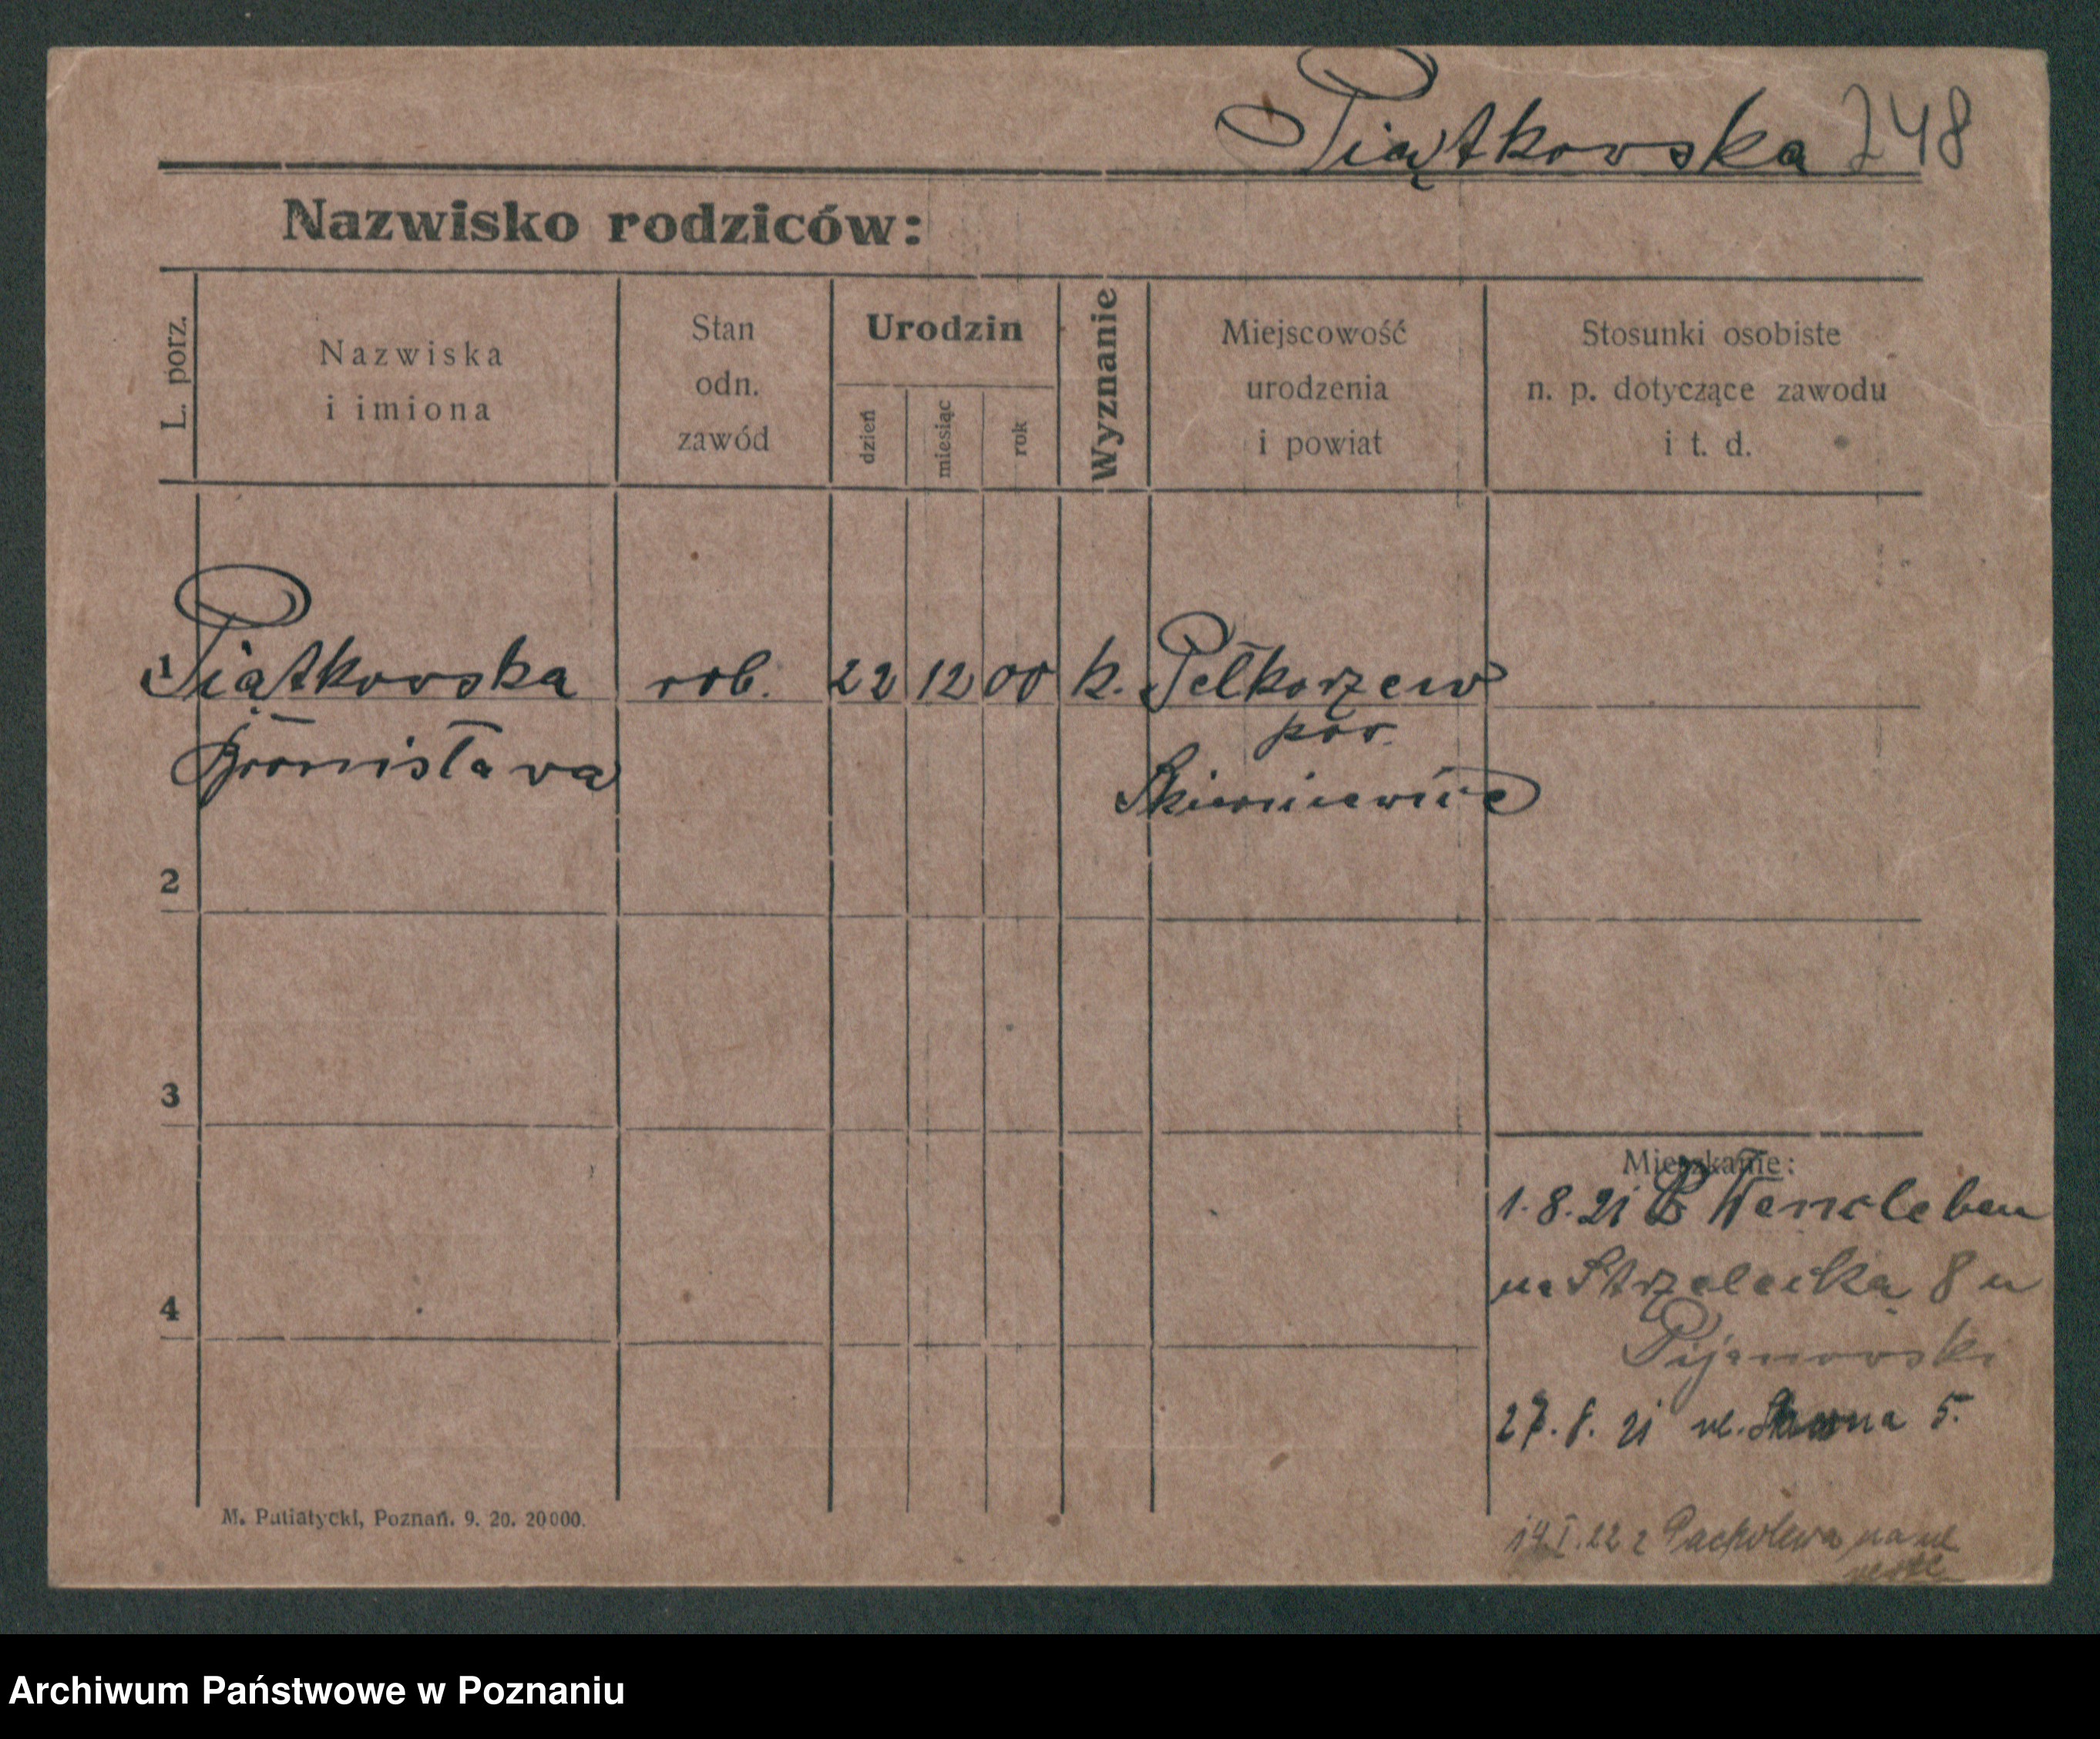 Piątkowska 248
Nazwisko rodziców:
L. porz.
Nazwiska
i imiona
Stan
odn.
zawód
Urodzin
dzień
miesiąc
rok
Wyznanie
Miejscowość
urodzenia
i powiat
Stosunki osobiste
n. p. dotyczące zawodu
i t. d.
1 Piątkowska rob. 22 12 00 k. Pełkorzew
Bronisława
pow.
Skierniewice
2
3
4
Mieszkanie:
1.8.21
na Strzelecką 8 u
Pijanowski
27.8.21 ul. 5.
M. Putiatycki, Poznań. 9. 20. 20000.
14.I.22 z Pacholewa na ul
Archiwum Państwowe w Poznaniu